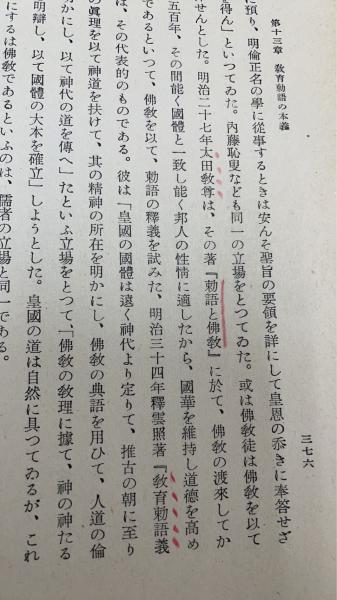 第十三章 敎育勅語の本義
三七六
に預り、明倫正名の學に從事するときは安んそ聖旨の要領を詳にして皇恩の忝きに奉答せざ
得ん」といつてゐた。內藤恥叟なども同一の立場をとつてゐた。或は佛敎徒は佛敎を以て
せんとした。明治二十七年太田敎尊は、その著『勅語と佛敎』に於て、佛敎の渡來してか
五百年、その間能く國體と一致し能く邦人の性情に適したから、國華を維持し道德を高め
であるといつて、佛敎を以て、勅語の釋義を試みた、明治三十四年釋雲照著『敎育勅語義
は、その代表的のものである。彼は「皇國の國體は遠く神代より定りて、推古の朝に至り
の眞理を以て神道を扶けて、其の精神の所在を明かにし、佛敎の典語を用ひて、人道の倫
明かにし、以て神代の道を傳へ」たといふ立場をとつて、「佛敎の敎理に據て、神の神たる
明辯し、以て國體の大本を確立」しようとした。皇國の道は自然に具つてゐるが、これ
にするは佛敎であるといふのは、儒者の立場と同一である。